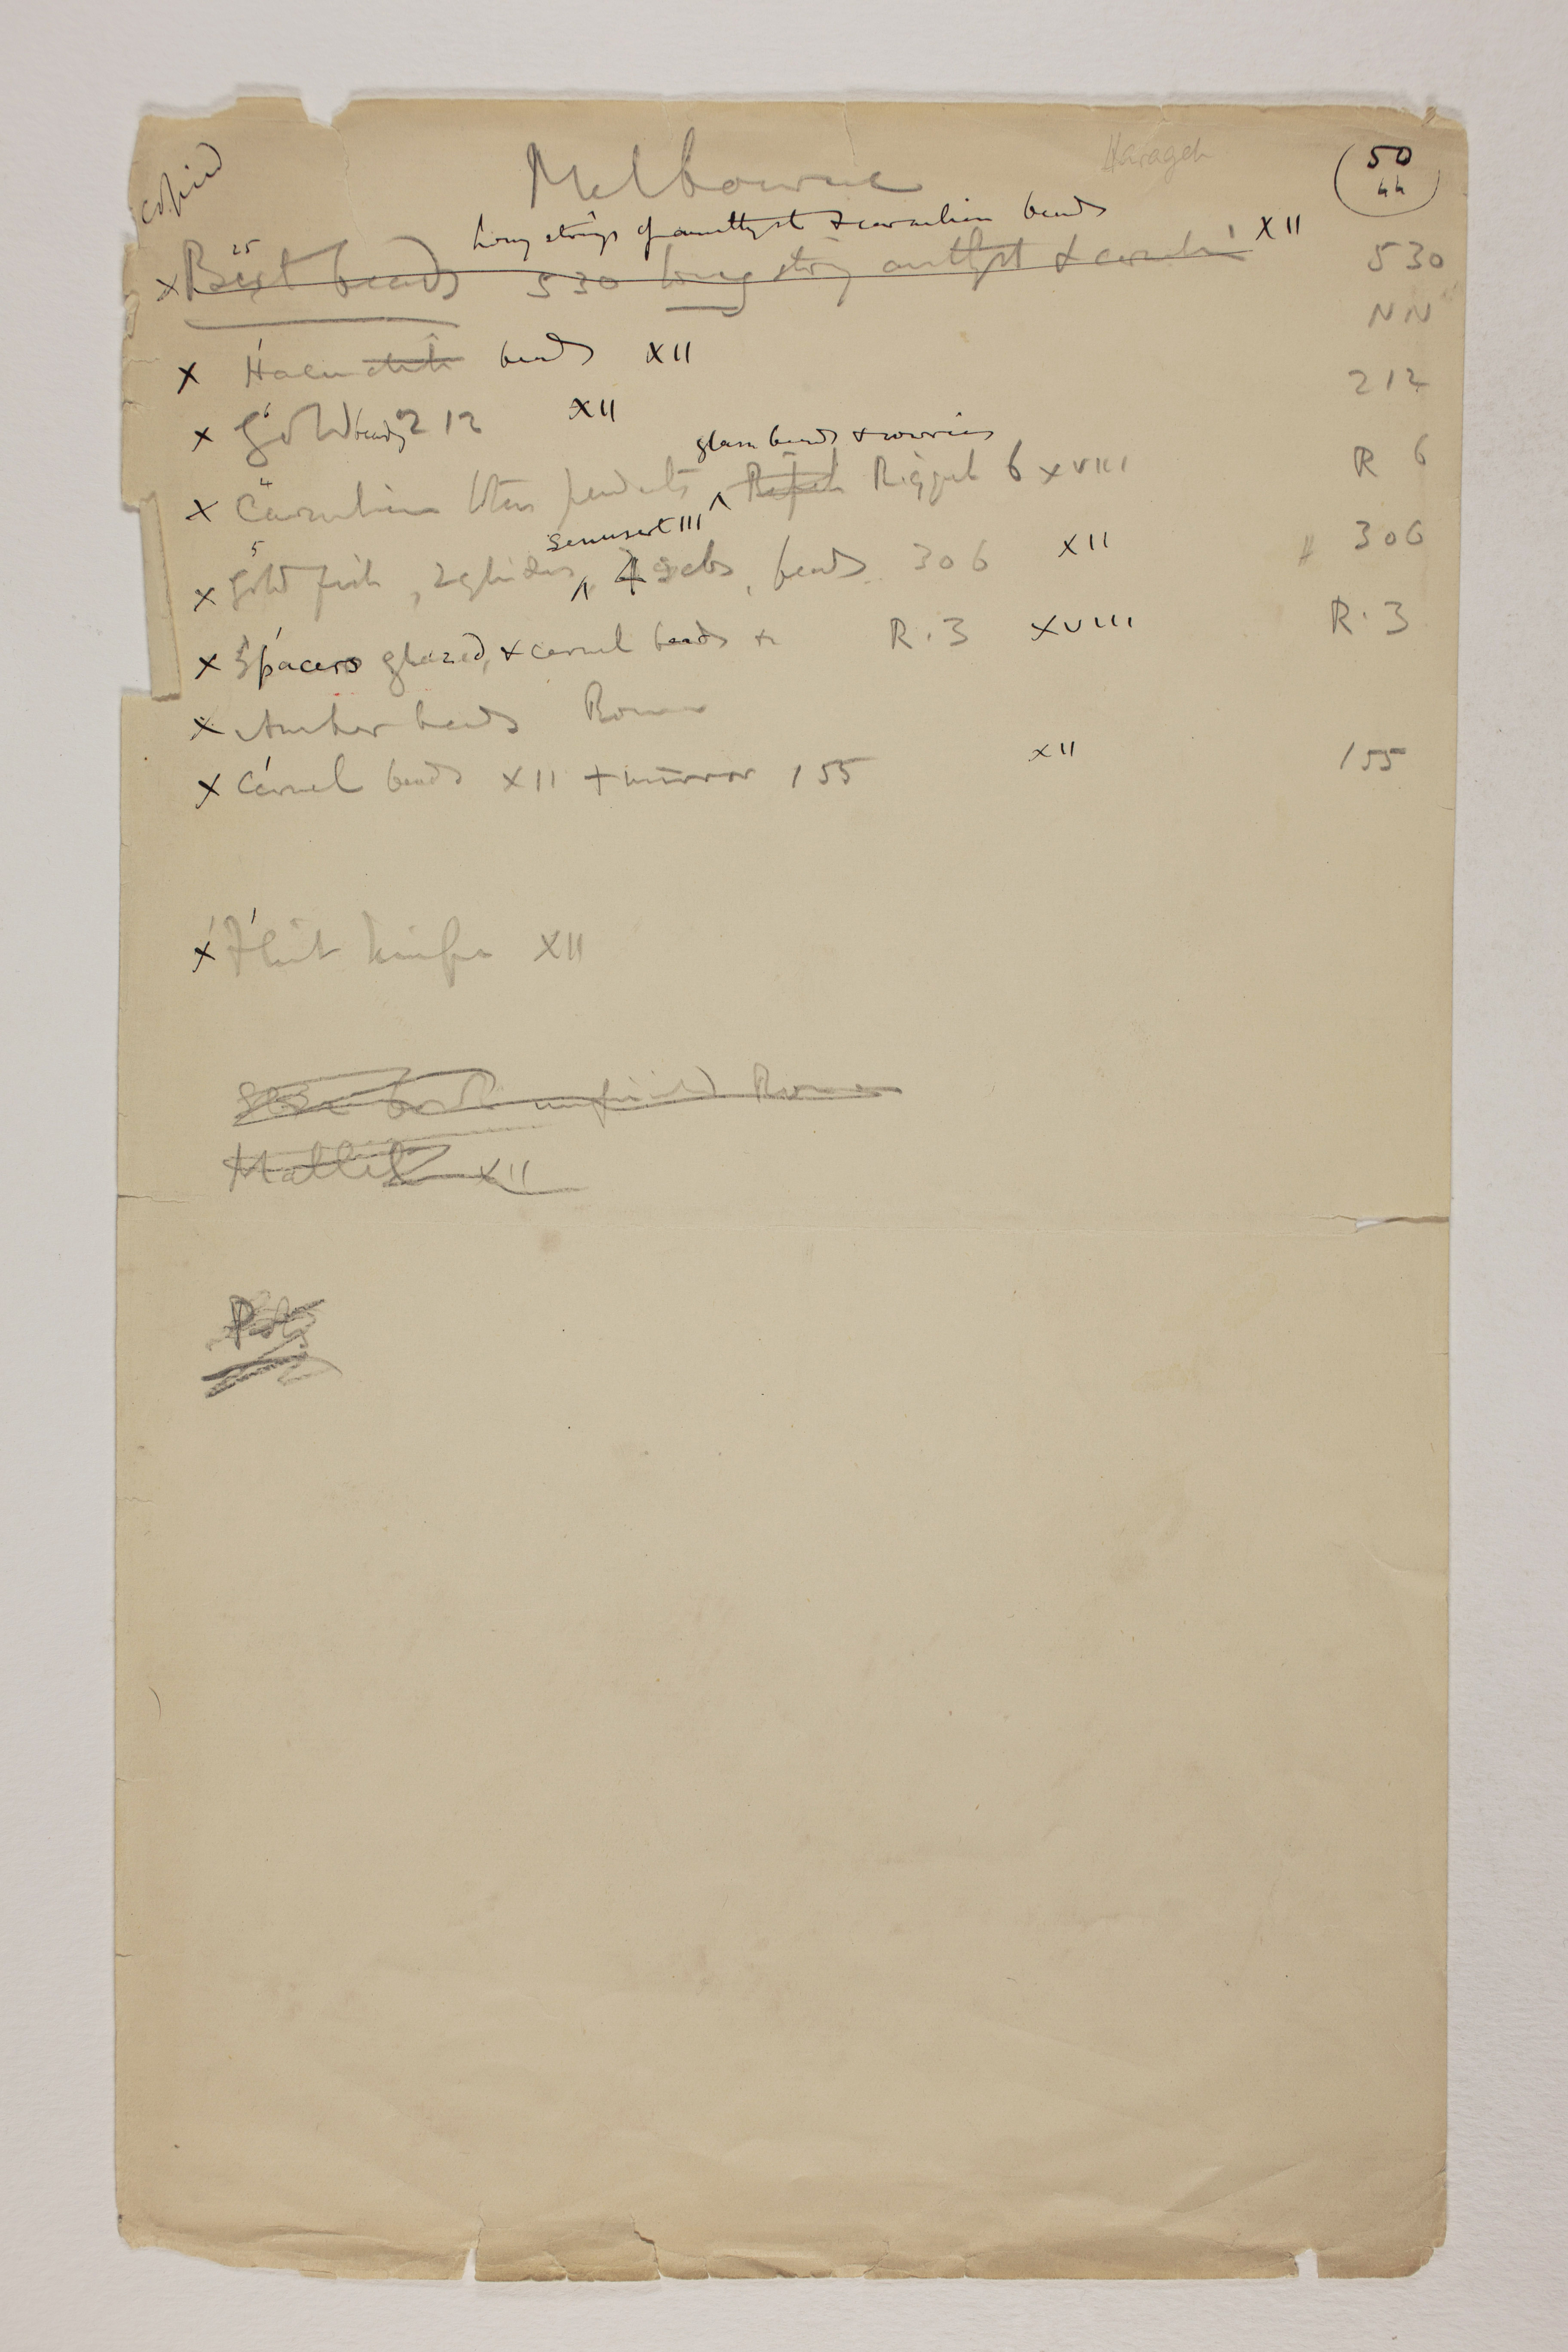 copied
Melbourne
Harageh
50
44
Long strings of amethyst & carnelian beads XII
25
x Best beads 530 long string amethyst & carneli 530
NN
x Haematite beads XII
x Gold beads 212 XII 212
6
glass beads & cowries
4
x Carnelian pendents ^ Riqqeh 6 XVIII R 6
Senusert III
5
x Gold fish, 2 glides, ^ 4 scbs, beads 306 XII " 306
x Spacers glazed, & carnel beads R.3 XVIII R.3
x Amber beads Roman
x Carnel beads XII + mirror 155 XII 155
x Flint knife XII
unfinished Roman
Mallet XII
Pots